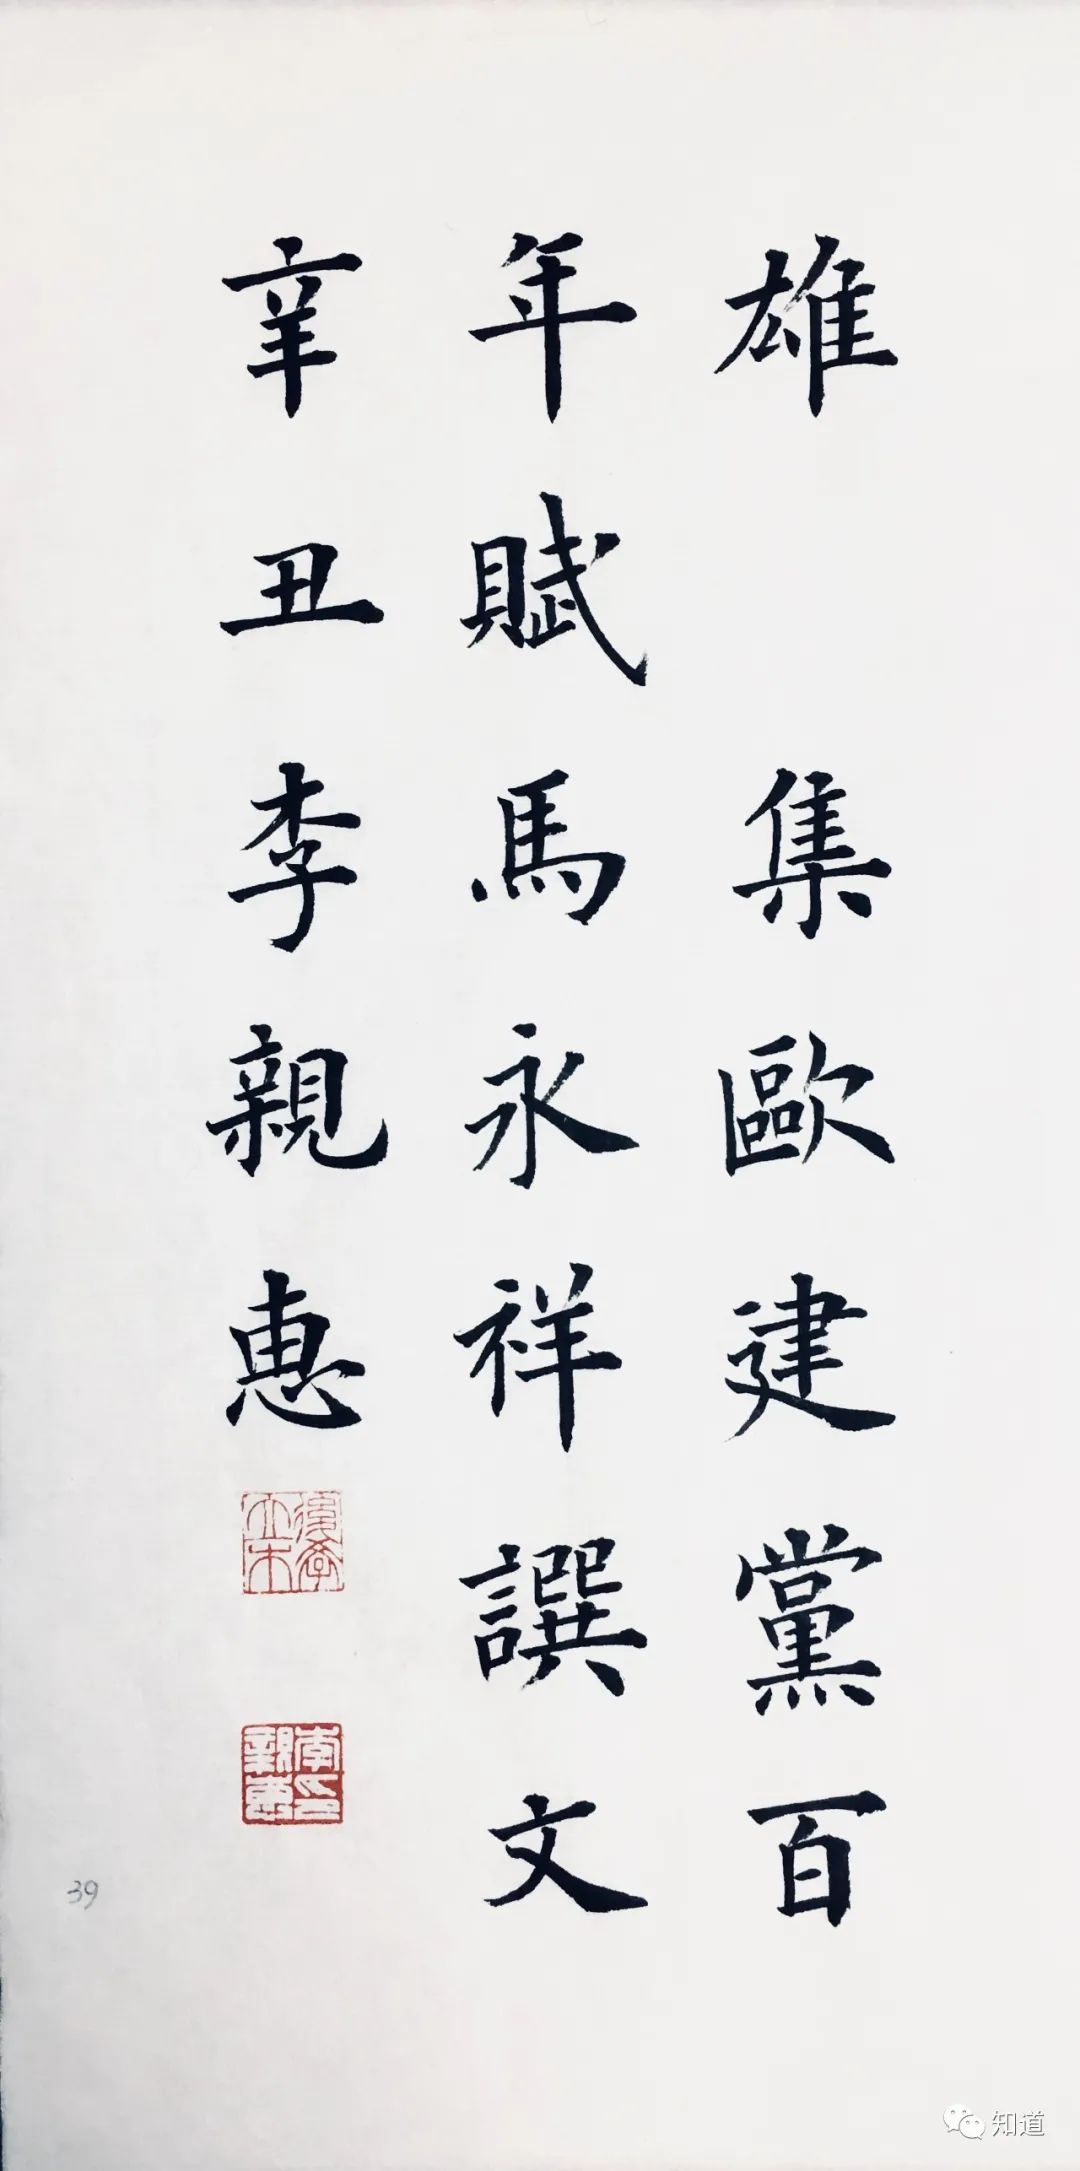 雄　集歐建黨百
年賦馬永祥譔文
辛丑李親惠
李親惠印
39
知道